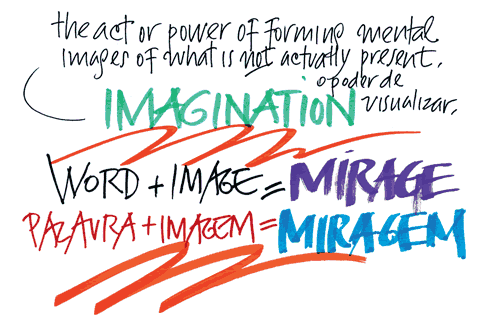 the act or power of forming mental
images of what is not actually present.
o poder de
visualizar.
IMAGINATION
WORD + IMAGE = MIRAGE
PALAVRA + IMAGEM = MIRAGEM